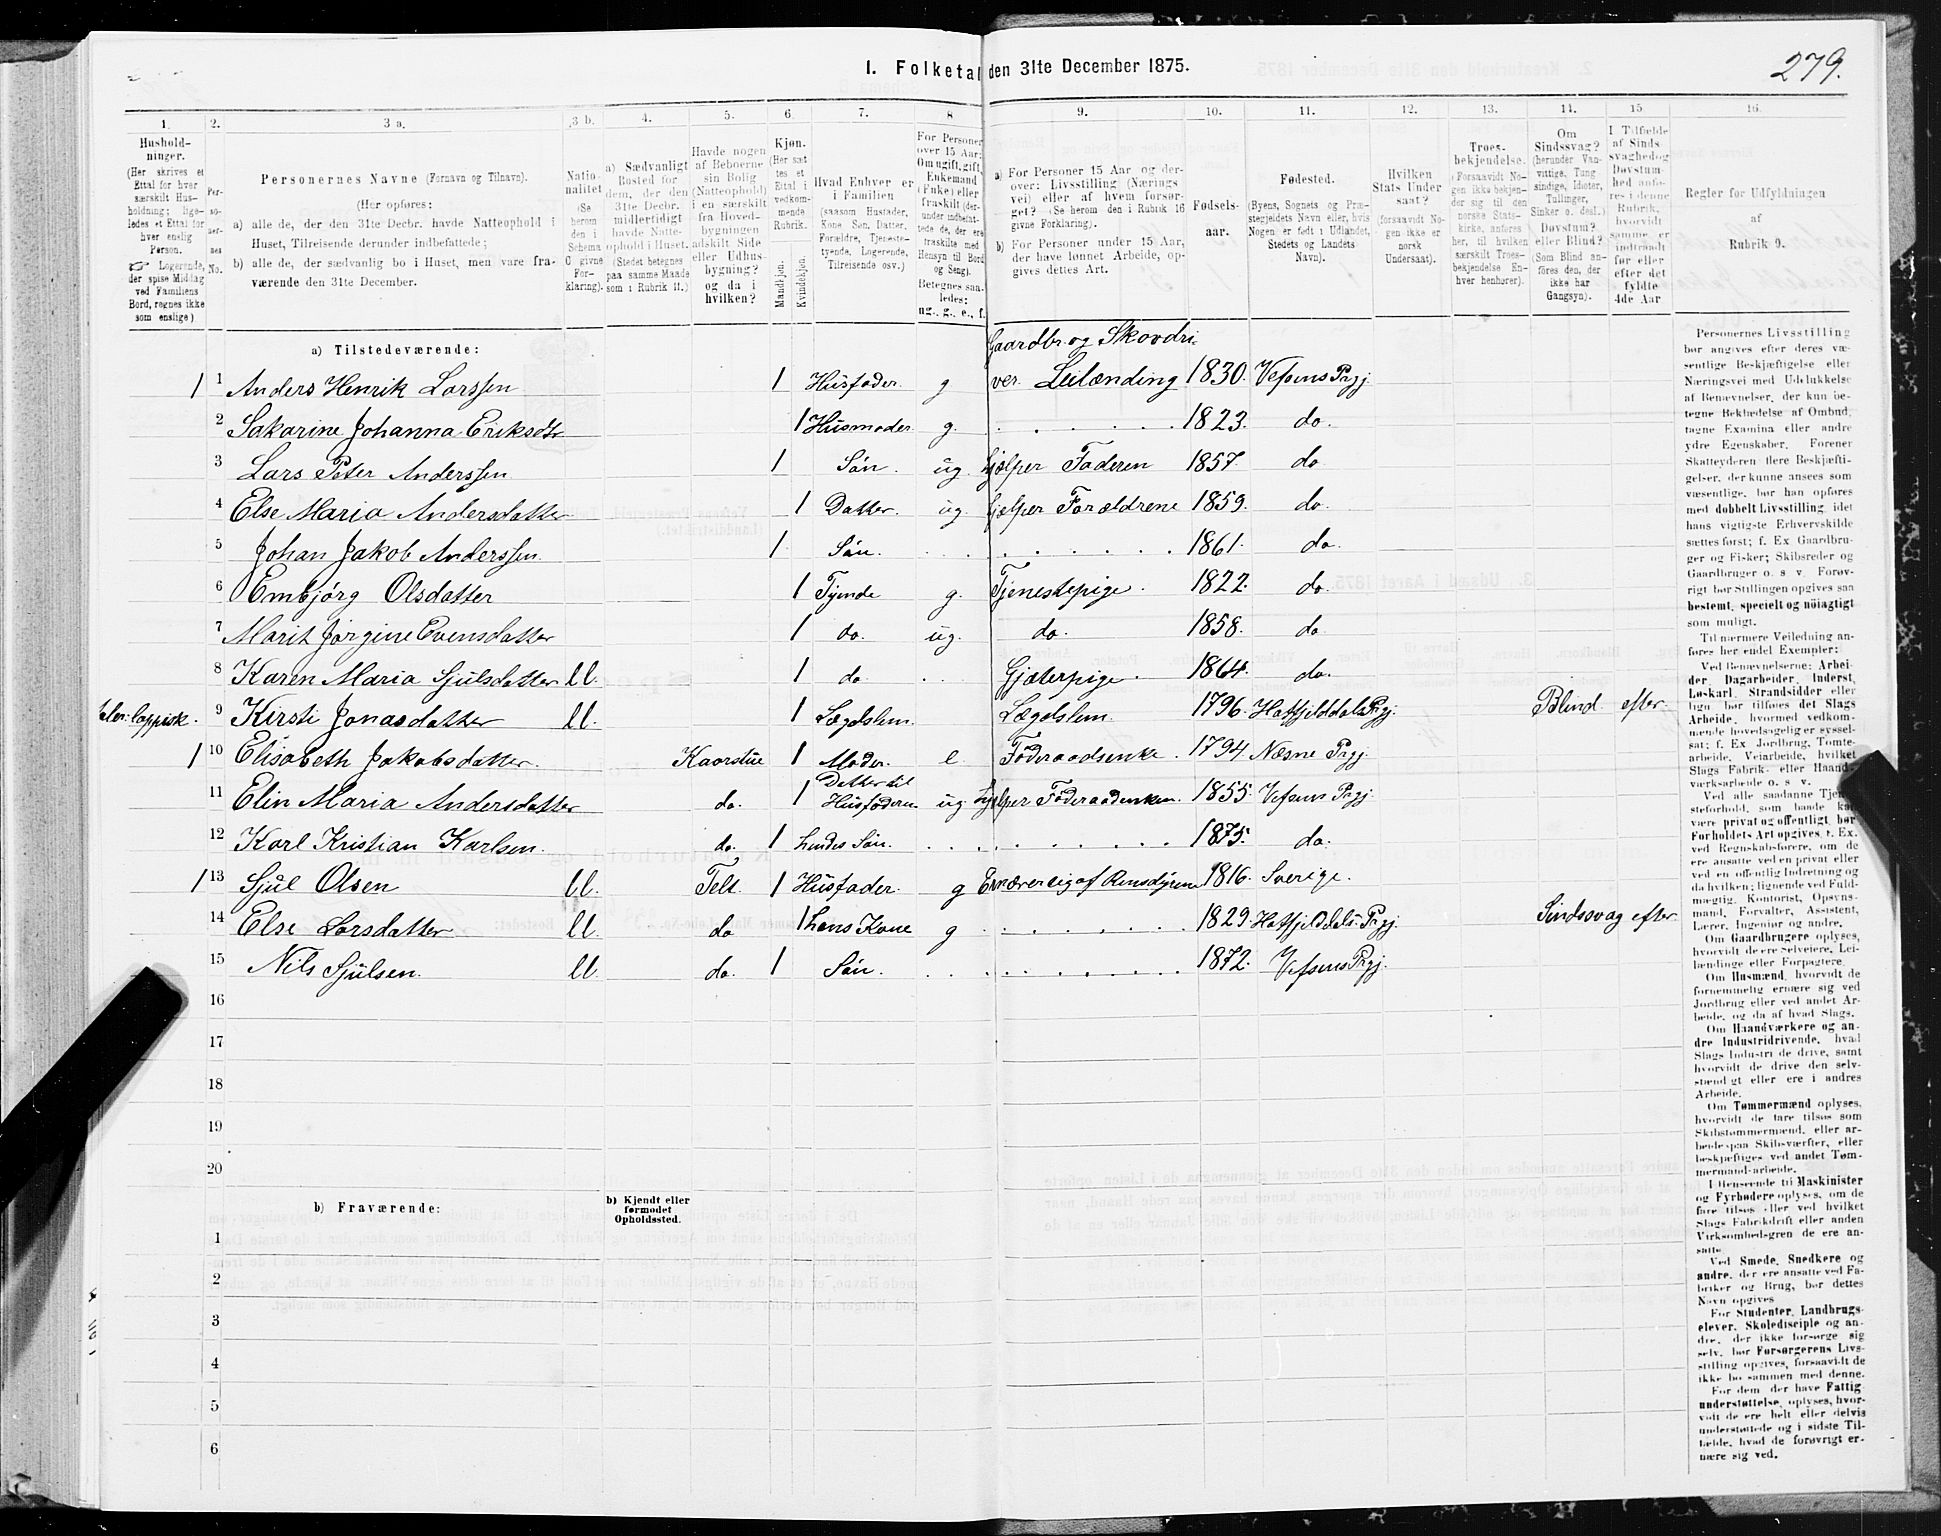 279.
I. Folketal den 31te December 1875.
1. 2. 3 a. 3 b. 4. 5. 6. 7. 8 9. 10. 11. 12. 13. 14. 15 16.
Hushold-
ninger.
(Her skrives et
Ettal for hver
særskilt Hus-
holdning; lige-
ledes et Ettal for
hver enslig
Person.
☞ Logerende,
der spise Middag
ved Familiens
Bord, regnes ikke
som enslige)
Per-
so-
ner-
nes
No.
Personernes Navne (Fornavn og Tilnavn).
(Her opføres:
a) alle de, der den 31te Decbr. havde Natteophold i
Huset, Tilreisende derunder indbefattede;
b) alle de, der sædvanlig bo i Huset, men vare fra-
værende den 31te December.
Natio-
nalitet
(Se
herom
den i
Schema
C givne
For-
klaring).
a) Sædvanligt
Bosted for
dem, der den
31te Decbr.
midlertidigt
havde Natte-
ophold i Huset.
(Stedet betegnes
paa samme Maade
som i Rubrik 11.)
Havde nogen
af Beboerne
sin Bolig
(Natteophold)
i en særskilt
fra Hoved-
bygningen
adskilt Side
eller Udhus-
bygning?
og da i
hvilken?
Kjøn.
(Her sæt-
tes et
Ettal i
vedkom-
mende
Rubrik.
Mandkjøn.
Kvindekjøn.
Hvad Enhver er
i Familien
(saasom Husfader,
Kone Søn, Datter,
Forældre, Tjeneste-
tyende, Logerende,
Tilreisende osv.)
For Personer
over 15 Aar:
Om ugift, gift,
Enkemand
(Enke) eller
fraskilt (der-
under indbefat-
tede de, der ere
fraskilte med
Hensyn til Bord
og Seng).
Betegnes saa-
ledes:
ug., g., e., f.
a) For Personer 15 Aar og der-
over: Livsstilling (Nærings
vei) eller af hvem forsør-
get? (Se herom den i Rubrik 16
givne Forklaring).
b) For Personer under 15 Aar,
der have lønnet Arbeide, op-
gives dettes Art.
Fødsels-
aar.
Fødested.
(Byens, Sognets og Præ-
stegjeldets Navn eller, hvis
Nogen er født i Udlandet,
Stedets og Landets
Navn).
Hvilken
Stats Under
saat?
(forsaavidt No-
gen ikke er
norsk
Undersaat).
Troes-
bekjendelse.
(Forsaavidt No-
gen ikke bekjen-
der sig til den
norske Stats-
kirke, anføres
her, til hvilken
anden Troes-
bekjendelse En-
hver henhører).
Om
Sindssvag?
(herunder Van-
vittige, Tung
sindige, Idioter,
Tullinger,
Sinker o. desl.)
Døvstum?
eller Blind?
(Som Blind an-
føres den, der
ikke har
Gangsyn).
I Tilfælde
af Sinds-
svaghed og
Døvstum-
hed anfø-
res i denne
Rubrik,
hvorvidt
samme er
indtraadt
før eller
efter det
fyldte
4de Aar
Regler for Udfyldningen
af
Rubrik 9.
a) Tilstedeværende:
Gaardbr. og Skovdri-
1 1 Anders Henrik Larssen 1 Husfader. g ver. Leilænding 1830. Vefsens Prgj.
2 Sakarine Johanna Eriksdtr 1 Husmoder. g. 1823. do.
3 Lars Peter Anderssen 1 Søn. ug. hjælper Faderen 1857. do
4 Else Maria Andersdatter 1 Datter. ug. hjælper Forældrene 1859. do.
5 Johan Jakob Anderssen. 1 Søn. 1861. do.
6 Embjørg Olsdatter 1 Tjende g. Tjenestepige. 1822. do.
7 Marit Jørgine Evensdatter 1 do. ug. do. 1858. do.
8 Karen Maria Sjulsdatter ll. 1 do Gjæterpige. 1864. do.
taler lappisk. 9 Kirsti Jonasdatter ll. 1 Lægdslem. Lægdslem. 1796. Hatfjelddals Prgj. Blind efter
1 10 Elisabeth Jakobsdatter. Kaarstue 1 Moder. e Føderaadsenke. 1794 Næsne Prgj.
11 Elin Maria Andersdatter do. 1 Datter til Husfaderen ug. hjelper Føderaadenken. 1855. Vefsens Prgj
12 Karl Kristian Karlsen. do. 1 hendes Søn. 1875. do.
1 13 Sjul Olsen ll. Telt. 1 Husfader. g Ernærer sig af Rensdyrene 1816. Sverige.
14 Else Larsdatter ll. do 1 hans Kone g 1829. Hatfjelddals Prgj. Sindssvag efter
15 Nils Sjulsen. ll do. 1 Søn. 1872. Vefsens Prgj.
16
17
18
19
20
b) Fraværende:
b) Kjendt eller
formodet
Opholdssted.
1
2
3
4
5
6
Personernes Livsstilling
bør angives efter deres væ-
sentlige Beskjæftigelse eller
Næringsvei med Udelukkelse
af Benævnelser, der kun be-
tegne Bekledelse af Ombud,
tagne Examina eller andre
ydre Egenskaber. Forener
Skatteyderen flere Beskjæfti-
gelser, der kunne ansees som
væsentlige, bør han opføres
med dobbelt Livsstilling, idet
hans vigtigste Erhvervskilde
sættes først; f. Ex Gaardbru-
ger og Fisker; Skibsreder og
Gaardbruger o. s. v. Forøv-
rigt bør Stillingen opgives saa
bestemt, specielt og nöiagtigt
som muligt.
Til nærmere Veiledning an-
føres her endel Exempler:
Ved Benævnelserne: Arbei-
der, Dagarbeider, Inderst,
Løskarl, Strandsidder eller
lign bør tilføies det Slags
Arbeide, hvormed vedkom-
mende hovedsagelig er syssel-
sat; f. Ex Jordbrug, Tomte-
arbeide, Veiarbeide, hvilket
Slags Fabrik- eller Haand-
værksarbeide o. s. v.
Ved alle saadanne Tjene-
steforhold, som baade kan
være privat og offentligt, bør
Forholdets Art opgives, t. Ex.
ved Regnskabsførere, om de
ere ansatte ved en privat eller
ved en offentlig Indretning og
da hvilken; lignende ved Fuld-
mægtig, Kontorist, Opsyns-
mand, Forvalter, Assistent,
Lærer, Ingeniør og andre.
Om Gaardbrugere oplyses,
hvorvidt de ere selveiere, Lei-
lændinge eller Forpagtere.
Om Husmænd, hvorvidt de
fornemmelig ernære sig ved
Jordbrug eller ved andet Ar-
beide, og da af hvad Slags.
Om Haandværkere og an-
dre Industridrivende, hvad
Slags Industri de drive, samt
hvorvidt de drive den selv-
stændigt eller ere i andres
Arbeide.
Om Tømmermænd oplyses,
hvorvidt de fare tilsøs som
Skibstømmermænd, eller ar-
beide paa Skibsværfter, eller
beskjæftiges ved andet Tøm-
mermand-arbeide.
I Henseende til Maskinister
og Fyrbødere oplyses, om de
fare tilsøs eller ved hvilket
Slags Fabrikdrift eller anden
Virksomhedsgren de ere an-
satte.
Ved Smede, Snedkere og
andre, der ere ansatte ved Fa-
briker og Brug, bør dettes
Navn opgives
For Studenter, Landbrugs-
elever, Skoledisciple og an-
dre, der ikke forsørge sig
selv, bør Forsørgerens Livs-
stilling opgives, forsaavidt de
ikke bo sammen med denne.
For dem, der have Fattig-
understøttelse, oplyses, hvor-
vidt de ere helt eller delvis
understøttede og i sidste Til-
fælde, hvad de forøvrigt er-
nære sig ved.